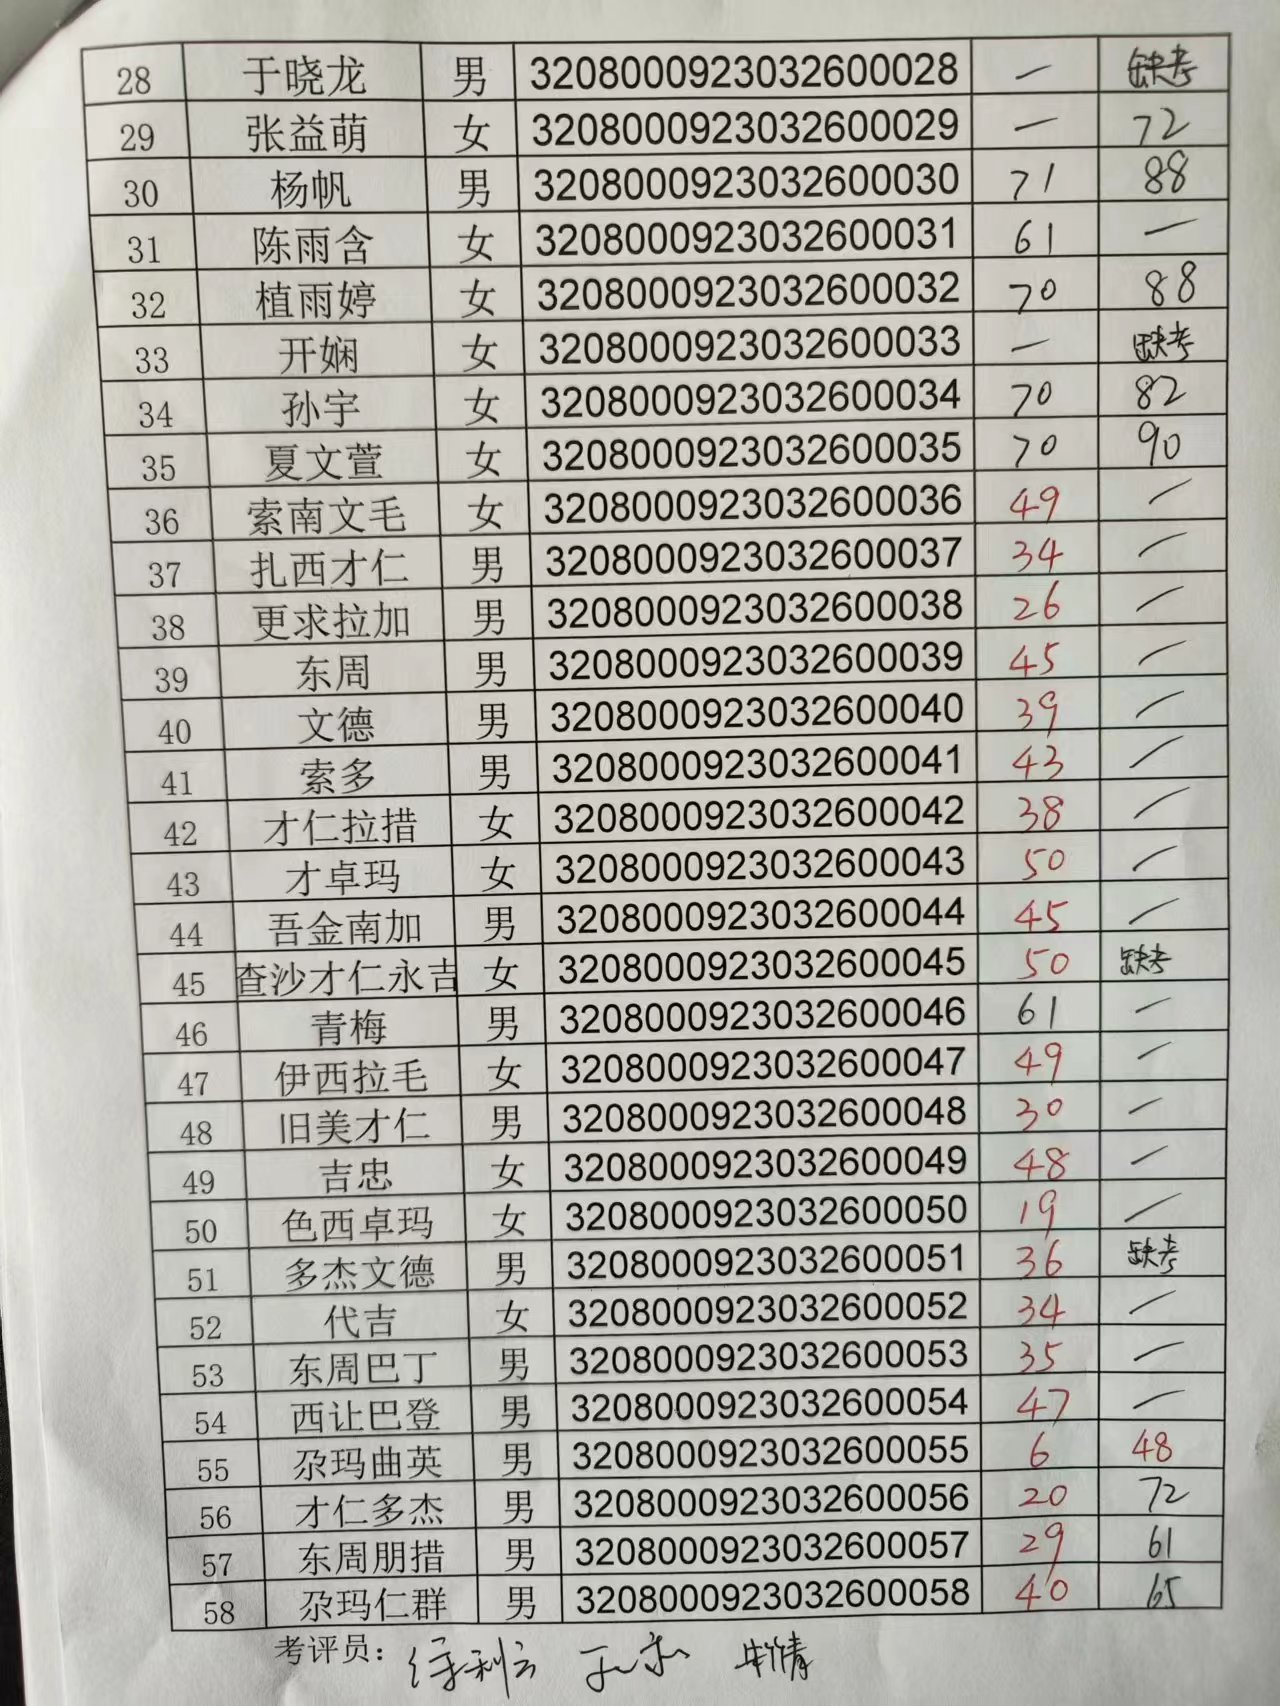 28 于晓龙 男 3208000923032600028 — 缺考
29 张益萌 女 3208000923032600029 — 72
30 杨帆 男 3208000923032600030 71 88
31 陈雨含 女 3208000923032600031 61 —
32 植雨婷 女 3208000923032600032 70 88
33 开娴 女 3208000923032600033 — 缺考
34 孙宇 女 3208000923032600034 70 82
35 夏文萱 女 3208000923032600035 70 90
36 索南文毛 女 3208000923032600036 49 —
37 扎西才仁 男 3208000923032600037 34 —
38 更求拉加 男 3208000923032600038 26 —
39 东周 男 3208000923032600039 45 —
40 文德 男 3208000923032600040 39 —
41 索多 男 3208000923032600041 43 —
42 才仁拉措 女 3208000923032600042 38 —
43 才卓玛 女 3208000923032600043 50 —
44 吾金南加 男 3208000923032600044 45 —
45 查沙才仁永吉 女 3208000923032600045 50 缺考
46 青梅 男 3208000923032600046 61 —
47 伊西拉毛 女 3208000923032600047 49 —
48 旧美才仁 男 3208000923032600048 30 —
49 吉忠 女 3208000923032600049 48 —
50 色西卓玛 女 3208000923032600050 19 —
51 多杰文德 男 3208000923032600051 36 缺考
52 代吉 女 3208000923032600052 34 —
53 东周巴丁 男 3208000923032600053 35 —
54 西让巴登 男 3208000923032600054 47 —
55 尕玛曲英 男 3208000923032600055 6 48
56 才仁多杰 男 3208000923032600056 20 72
57 东周朋措 男 3208000923032600057 29 61
58 尕玛仁群 男 3208000923032600058 40 65
考评员：